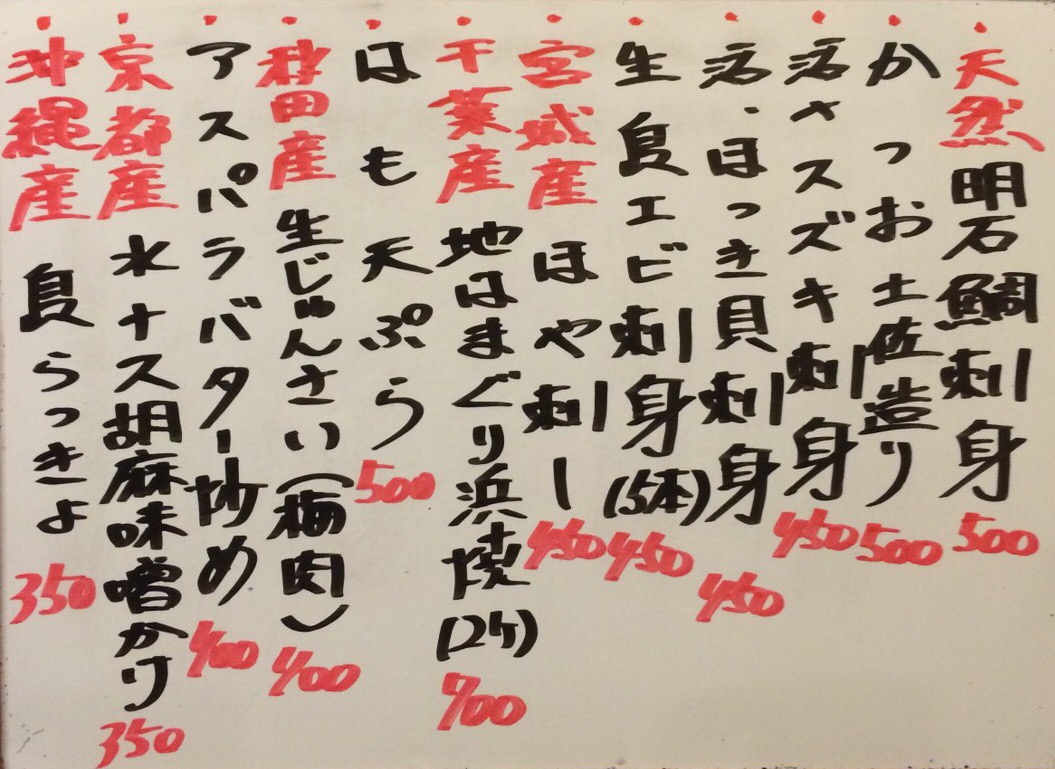 天然 明石鯛刺身 500
かつお土佐造り 500
活〆スズキ刺身 450
活、ほっき貝刺身 450
生島エビ刺身(5本) 450
宮城産 ほや刺し 450
千葉産 地はまぐり浜焼(2ケ) 700
はも天ぷら 500
秋田産 生じゅんさい(梅肉) 400
アスパラバター炒め 400
京都産 水ナス胡麻味噌かけ 350
沖縄産 島らっきょ 350